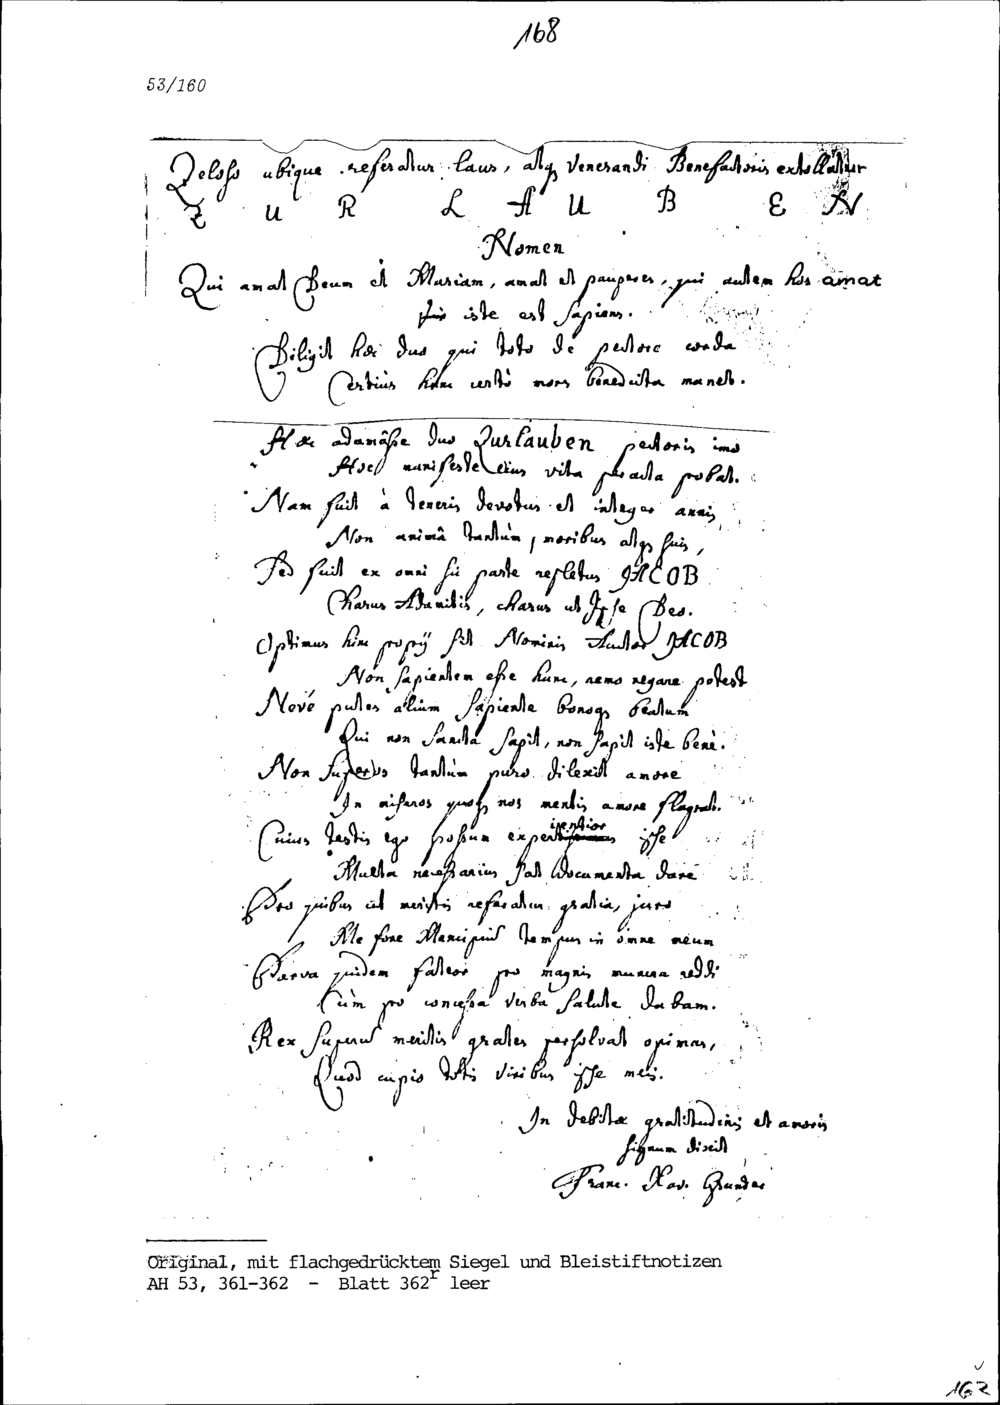 168
53/160
Zeloso ubique referatur laus, atq; Venerandi Benefactoris extollatur
Z U R L A U B E N
Nomen
Qui amat Deum et Mariam, amat et pauperes, qui autem hos amat
iste est sapiens.
Diligit haec duo qui toto de pectore corda
Certius hunc certò mors benedicta manet.
Haec adamâsse duo Zurlauben pectoris imo
Hoc manifeste eius vita peracta probat.
Nam fuit à teneris devotus et integer annis
Non animâ tantùm, moribus atq; suis,
Sed fuit ex omni sic parte repletus JACOB
Charus, charus ut Ipse Deo.
Optimus hinc proprij fit Nominis Auctor JACOB
Non sapientem esse hunc, nemo negare potest
Nevé putes alium sapiente bonoq; beatum
Qui non sancta sapit, non sapit iste benè.
Non superos tantùm puro dilexit amore
In miseros quoq; nos mentis amore flagrat.
Cuius testis ego possum experientior ipse
Multa necessarius sat documenta dare
Pro quibus ut meritis referatur gratia, juro
Me fore Mancipium tempus in omne meum
Parva quidem fateor pro magnis munera reddi
Cùm pro concessa verba salute dabam.
Rex superum meritis grates persolvat opimas,
Quod cupio totis viribus ipse meis.
In debitae gratitudinis et amoris
signum dixit
Franc. Xav.
Original, mit flachgedrücktem Siegel und Bleistiftnotizen
AH 53, 361-362 - Blatt 362r leer
162